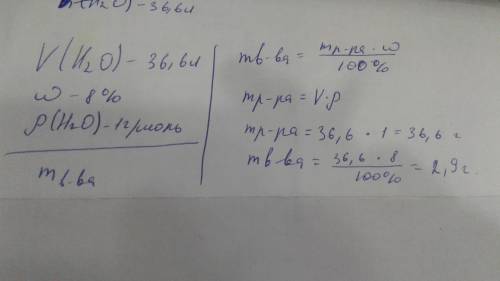 (H₂O) – 36,6л
V(H₂O) – 36,6л
ω – 8%
ρ(H₂O) – 1г/моль
mв-ва
mв-ва = mр-ра · ω / 100%
mр-ра = V·ρ
mр-ра = 36,6 · 1 = 36,6 г
mв-ва = 36,6 · 8 / 100% = 2,9г.